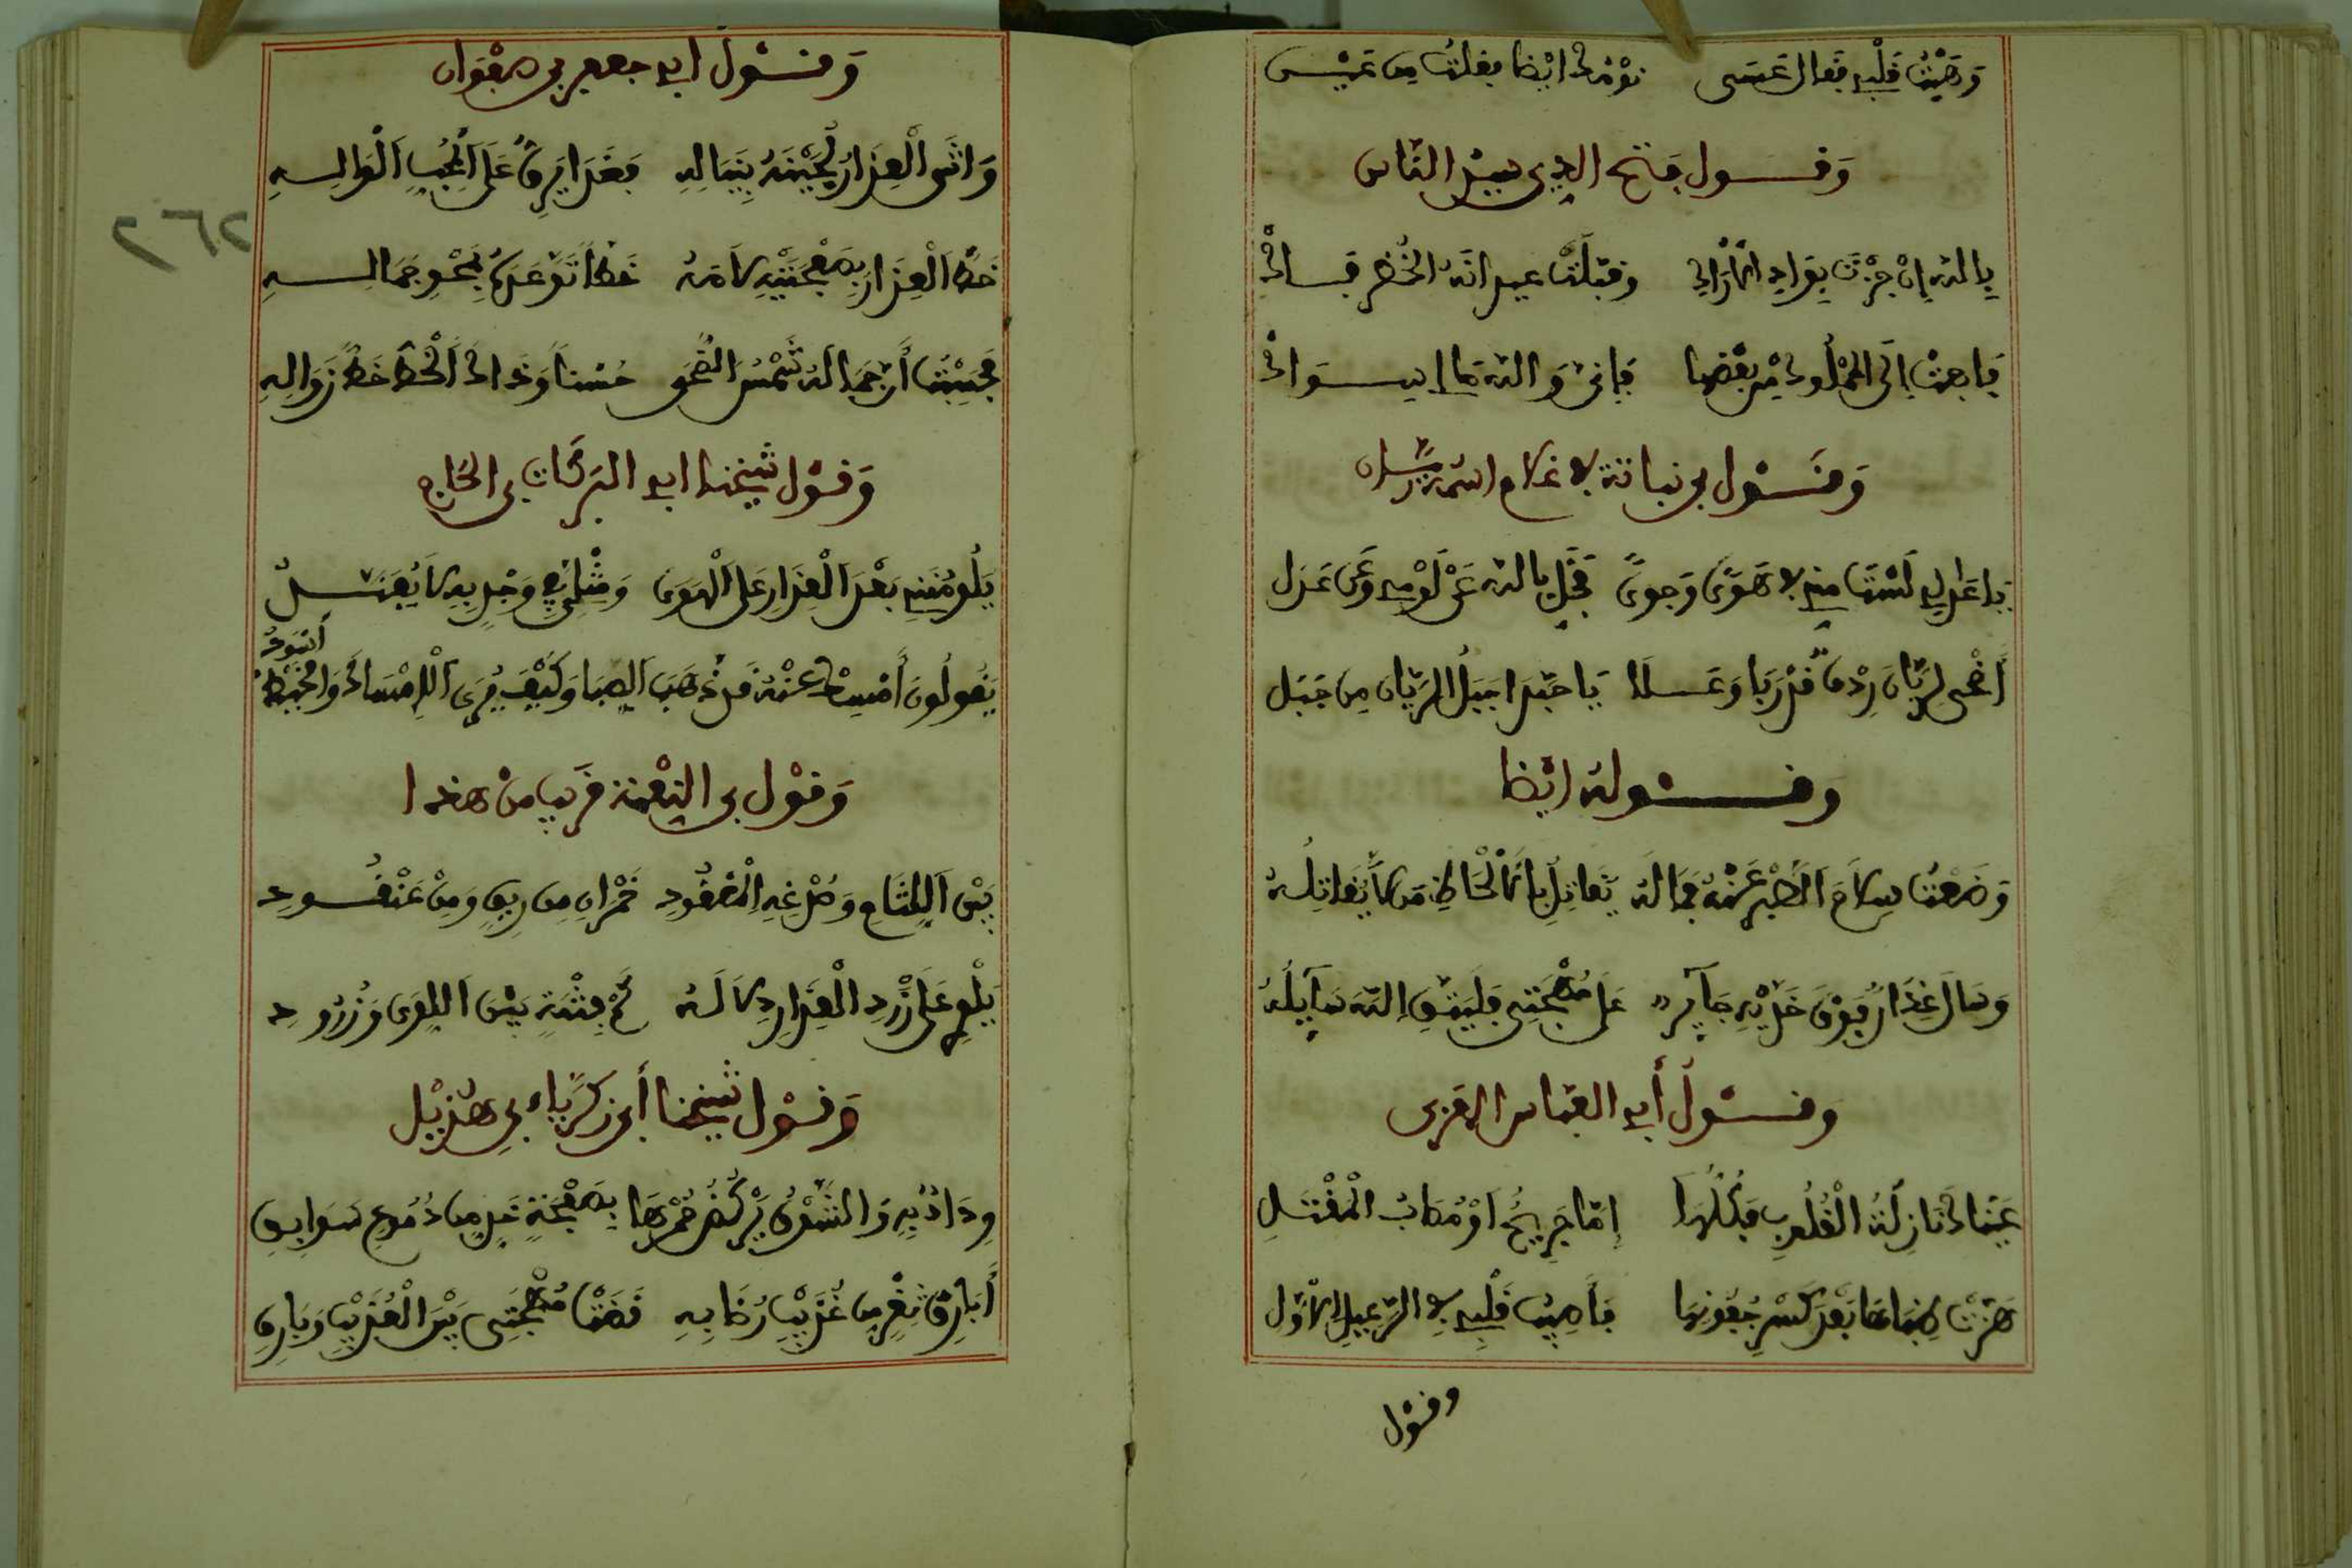 وَهَبْتُ قَلْبِي فَقَال عَسَى نَوْمُكَ ايْضا فقلتُ مِن عَيْنِي
وَقَــول فتح الدِين سيّد النّاس
بِاللهِ إنْ جُزْتَ بِوَادِ الأرَاكِ وقبّلَتْ عيدانَهُ الخُضْرُ فَــاكِ
فَابعثْ إلَى المَمْلُوكِ مِنْ بَعْضِهَا فَإِنِّي وَاللهِ مَا لِي سِــوَاكِ
وَقَــوْل بن نباتة في غلام اسمه ريّان
يَا عَاذِلِي لَسْتَ مني في هَوًى وَجوىً فَخَلِّ بِاللهِ عَنْ لَوْمِي وَعَن عَذَل
أَضْحَى لِرَيَّانَ رِدْفٌ قَدْ رَبَا وَعَــلَا يَا حَبَّذَا جَبَلُ الرَيّان مِن جَبَل
وَقَــوْله ايْضا
وَضَعْتُ سِلَاحَ الصَّبْرِ عَنْهُ فَمَا لَهُ يُقَاتِلُ بِالْأَلْحَاظِ مَن لَا يُقَاتِلُهُ
وَسَالَ عِذَارٌ فَوْقَ خَدَّيْهِ جَآئِر عَلَى مُهْجَتِي فَلْيَتَّقِ اللهَ سَآئِلُهُ
وَقَــوْلُ أَبِي العبّاس العَزَفي
عَيْنَاكَ نَازِلَةُ الْقُلُوبِ فَكُلُّهَا إِمّا جَرِيحٌ أَوْ مُصَابُ الْمَقْتَلِ
هَزَّتْ ظُبَاهَا بَعْدَ كَسْرِ جُفُونِهَا فَأُصِيبَ قَلْبِي في الرَّعِيلِ الأوّلِ
وقَوْل
وَقَــوْل أبي جعفر بن صفوان
وَاتَى الْعِذَارُ لِحَيْنَهُ بِنِبَالِهِ فَغَدَا يَرِقُّ عَلَى الْمُحِبِّ الْوَالِــهِ
خَطُّ الْعِذَارِ بِصَفْحَتَيْهِ كَلَامِهِ خَطًّا تَوَعَّدَهُ بِمَحْوِ جَمَالِــهِ
فَحَسِبْتُ أَنَّ جَمَالَهُ شَمْسُ الضُّحَى حُسْناً وَذَاكَ الْخَطُّ خَطُّ زَوَالِهِ
وَقَوْل شَيْخنا ابي البَرَكَات بن الحَاج
يَلُومُنَنِي بَعْدَ الْعِذَارِ عَلَى الْهَوَى وَمِثْلِي فِي وَجْدِي بِهِ لَا يُفَنَّــدُ
يَقُولُونَ أَمْسِكْ عَنْهُ قَدْ ذَهَبَ الصِّبَا وَكَيْفَ يُرَى الْإِمْسَاكُ وَالْخَيْطُ أَسْوَدُ
وَقَوْل بن النعْمَة قريب من هذا
بَيْنَ اللِّثَامِ وَصُدْغِهِ الْمَعْقُودِ خَمْرَانِ مِن رِيقٍ وَمِنْ عُنْقُــودِ
يَلْوِي عَلَى زَرَدِ الْعِذَارِ دَلَالَهُ كَمْ فِتْنَةٍ بَيْنَ اللِّوَى وَزَرُودِ
وَقَوْل شَيْخنا أبي زكرِيّاء بن هُذَيْل
وِدَادِيهِ وَالشَّوْقُ يَرْكُضُ حُمْرَهَا بِصَفْحَةِ خَدٍّ مِن دُمُوعٍ سَوَابِقِ
أَبَارِقُ ثَغْرٍ مِن عُذَيْبِ رُضَابِهِ قَضَتْ مُهْجَتِي بَيْنَ الْعُذَيْبِ وَبَارِقِ